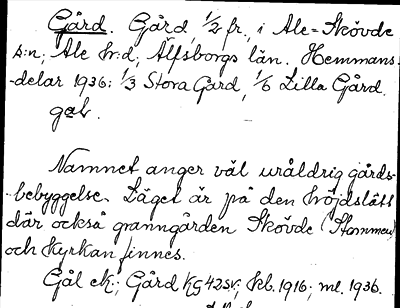 Gård. Gård, 1/2 fr., i Ale-Skövde
s:n, Ale hr:d, Älfsborgs län. Hemmans-
-delar 1936: 1/3 Stora Gård, 1/6 Lilla Gård.
gəl.
Namnet anger väl uråldrig gårds-
-bebyggelse. Läget är på den höjdslätt
där också granngården Skövde (Stommen)
och kyrkan finnes.
Gål ek.; Gård KG42SV; kb. 1916; ml. 1936.